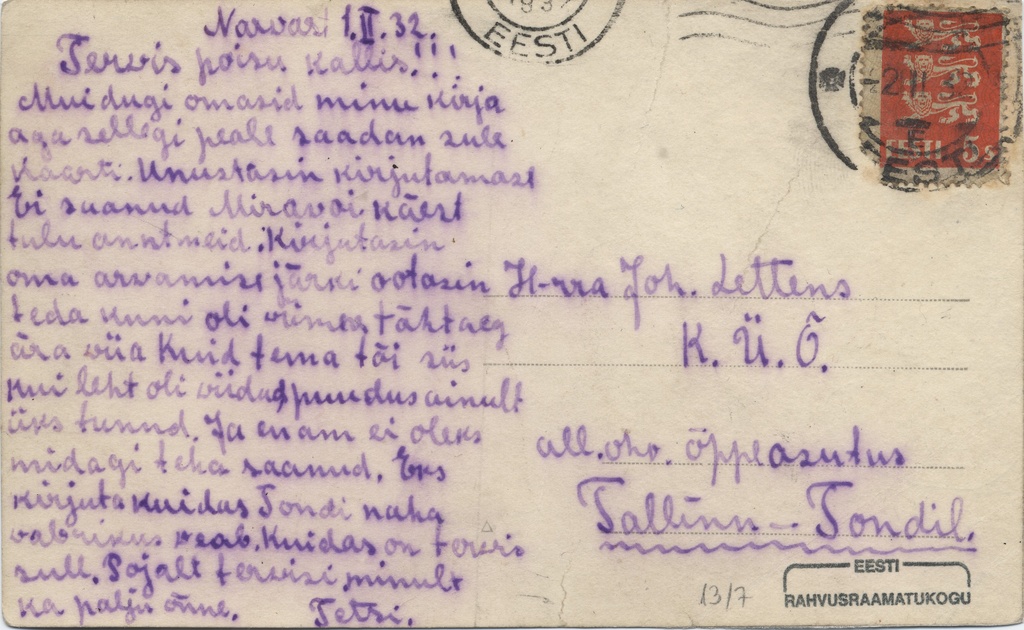 Narvast 1.II.32.
Tervis poisu kallis!!!
Muidugi omasid minu kirja
aga sellegi peale saadan sulle
kaarti. Unustasin kirjutamast
Ei saanud käest
tulu
Kirjutasin
oma arvamise järki ootasin
teda kuni oli viimeg tähtaeg
ära viia kuid tema tõi siis
kui leht oli viidud puudus ainult
üks tunnd. Ja enam ei oleks
midagi teha saanud. Eks
kirjuta kuidas Tondi naha
vabrikus veab. Kuidas on tervis
sull. Palju tervisi minult
ka palju õnne. Tetsi.
H-rra Joh. Lettens
K. Ü. Õ.
all. ohv. õppeasutus
Tallinn – Tondil.
EESTI
2 II
EESTI 5 s
EESTI
13/7
EESTI
RAHVUSRAAMATUKOGU